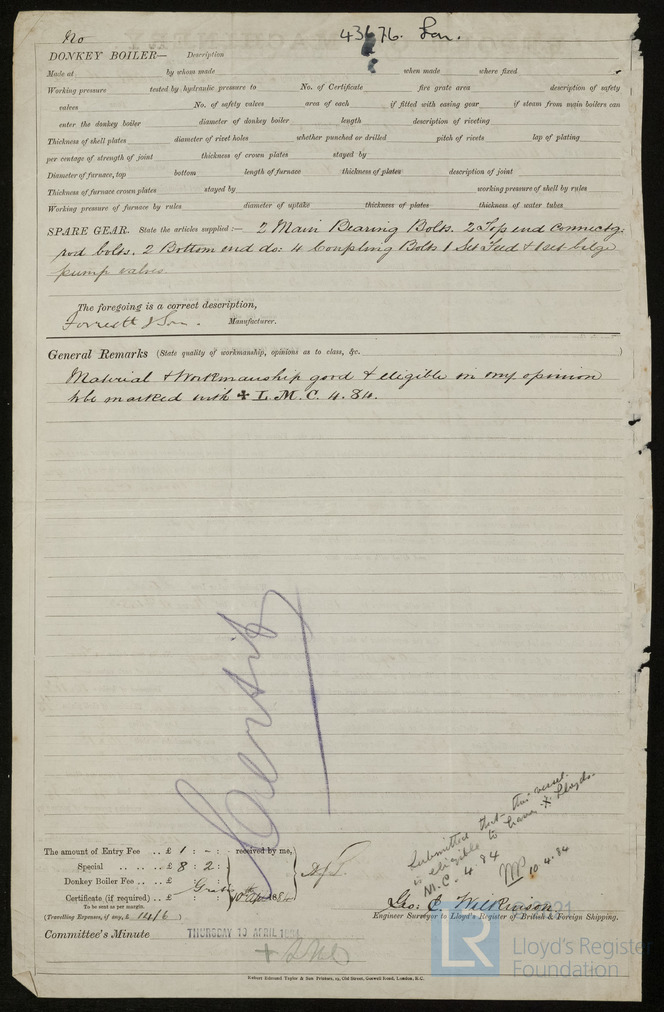 No 43676. Lon.
DONKEY BOILER— Description
Made at by whom made when made where fixed
Working pressure tested by hydraulic pressure to No. of Certificate fire grate area description of safety
valves No. of safety valves area of each if fitted with easing gear if steam from main boilers can
enter the donkey boiler diameter of donkey boiler length description of riveting
Thickness of shell plates diameter of rivet holes whether punched or drilled pitch of rivets lap of plating
per centage of strength of joint thickness of crown plates stayed by
Diameter of furnace, top bottom length of furnace thickness of plates description of joint
Thickness of furnace crown plates stayed by working pressure of shell by rules
Working pressure of furnace by rules diameter of uptake thickness of plates thickness of water tubes
SPARE GEAR. State the articles supplied:— 2 Main Bearing Bolts. 2 Top end connectg.
rod bolts. 2 Bottom end do: 4 Coupling Bolts 1 Set Feed & 1 set bilge
pump valves
The foregoing is a correct description,
Forrestt & Son. Manufacturer.
General Remarks (State quality of workmanship, opinions as to class, &c. )
Material & Workmanship good & eligible in my opinion
to be marked with ✠ L.M.C. 4.84.
Certif
Submitted that this vessel
is eligible to have ✠ Lloyds.
M.C - 4.84
10.4.84
The amount of Entry Fee .. £ 1 : - : received by me,
Special .. £ 8 : 2 :
Donkey Boiler Fee .. £
Certificate (if required) .. £ Gratis
To be sent as per margin.
(Travelling Expenses, if any, £ 14/6 )
Geo: C. Wilkinson
Engineer Surveyor to Lloyd's Register of British & Foreign Shipping.
Committee's Minute THURSDAY 10 APRIL 1884
+ LMC
LR © 2021
Lloyd's Register
Foundation
Robert Edmund Taylor & Son Printers, 19, Old Street, Goswell Road, London, E.C.